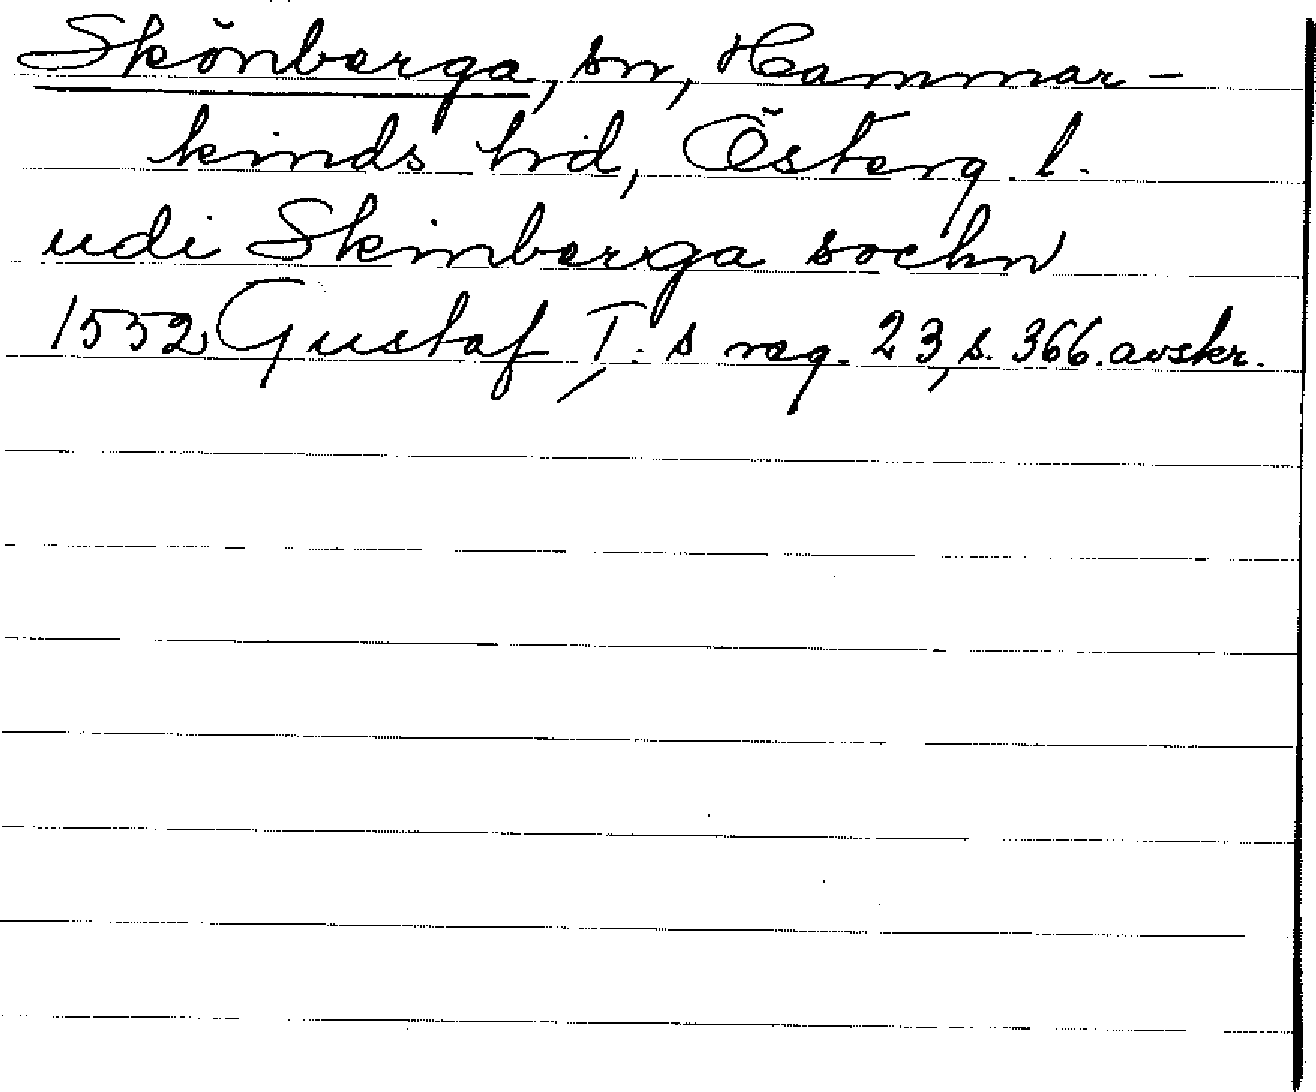 Skönberga, sn, Hammar-
kinds hd, Österg. l.
udi Skinberga sochn
1552 Gustaf I:s reg. 23, s. 366. avskr.